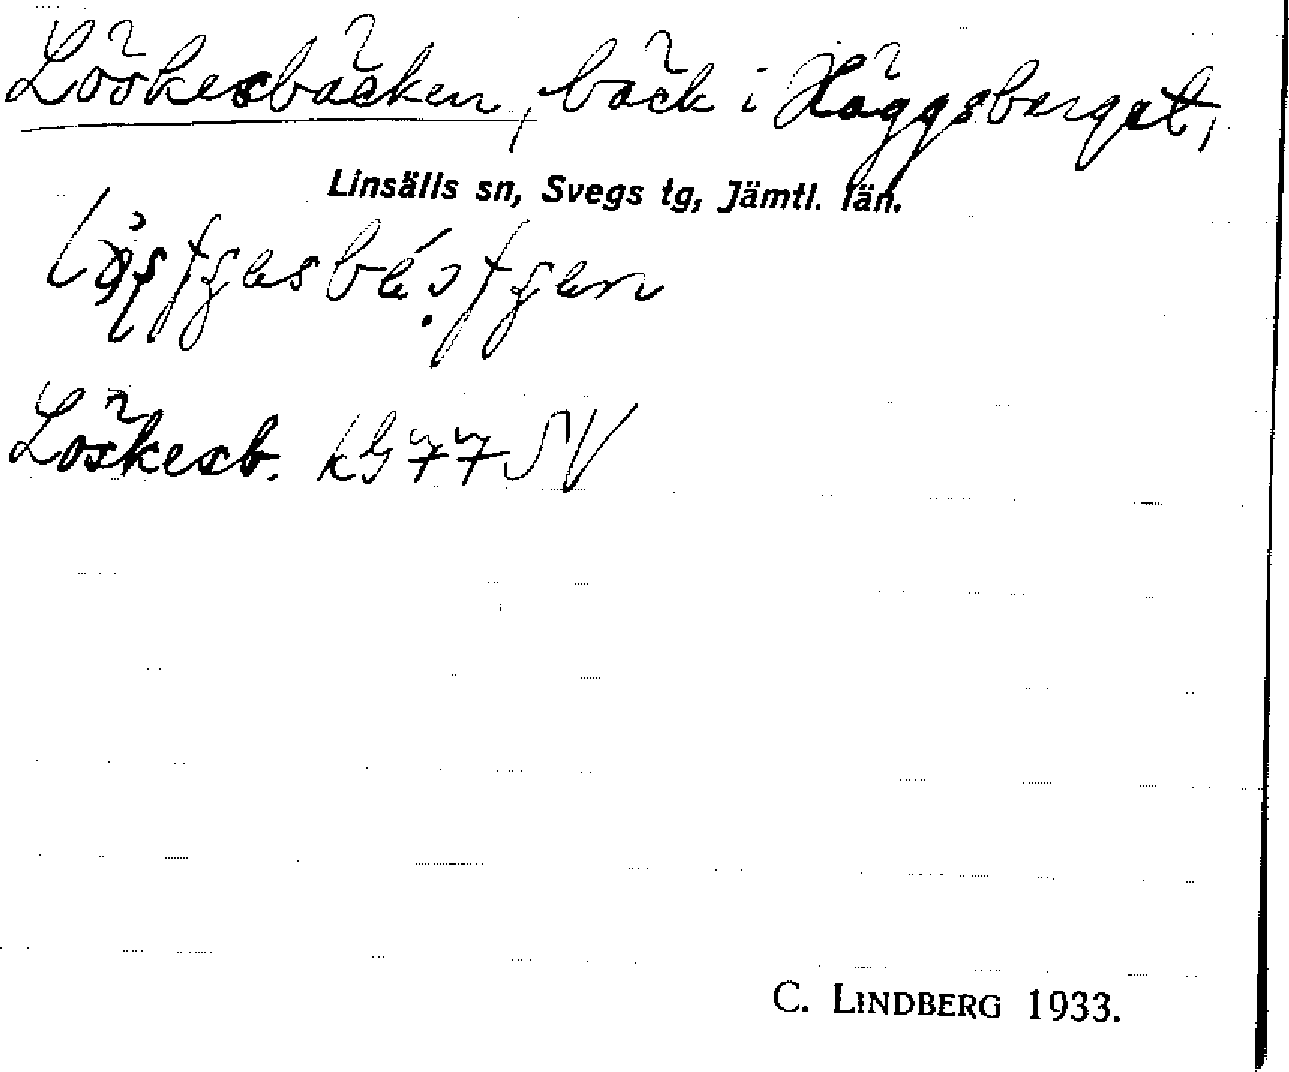 Löskesbäcken, bäck i Häggsberget,
Linsälls sn, Svegs tg, Jämtl. län.
Löskesb. kG 77 SV
C. LINDBERG 1933.